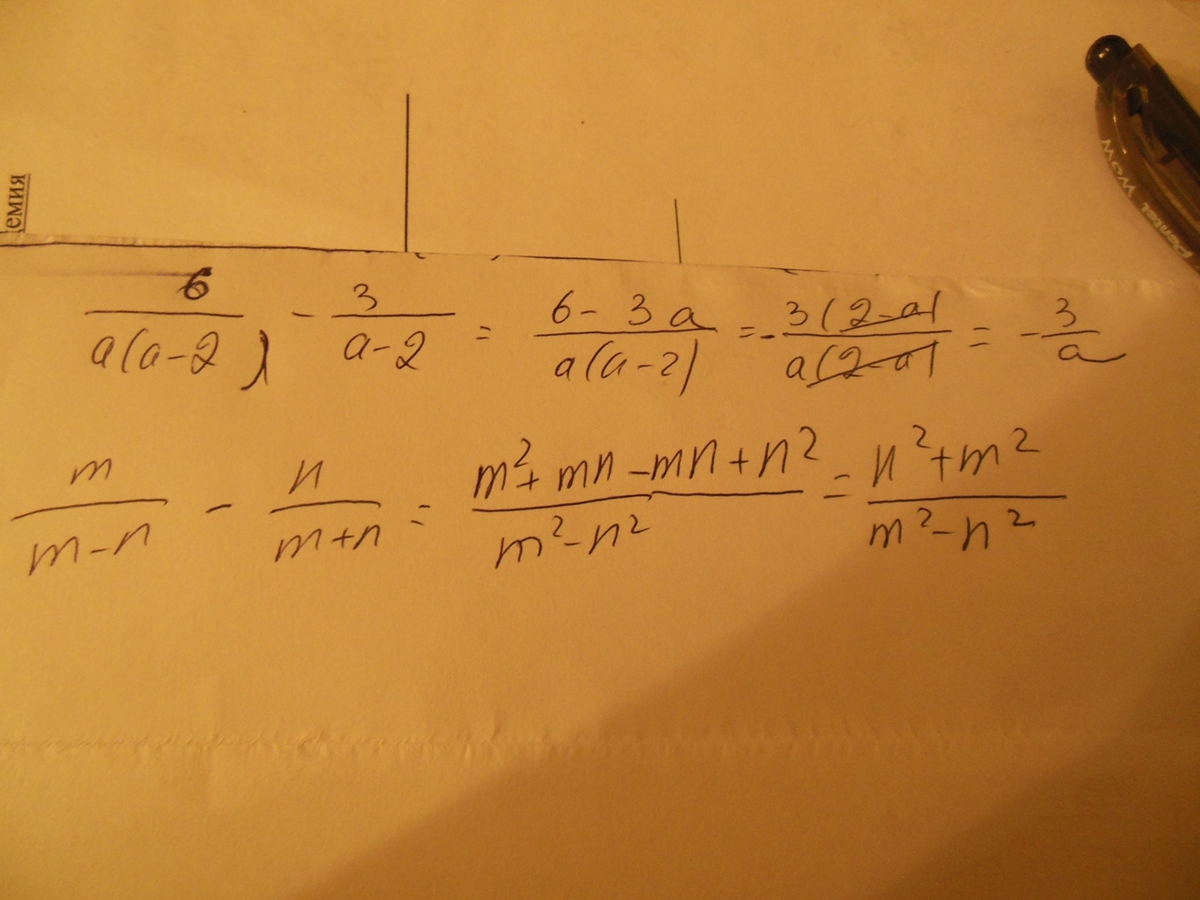 емия
Pentel WOW
6/(a(a-2)) - 3/(a-2) = (6 - 3a)/(a(a-2)) = - 3(2-a)/(a(2-a)) = - 3/a
m/(m-n) - n/(m+n) = (m²+mn-mn+n²)/(m²-n²) = (n²+m²)/(m²-n²)